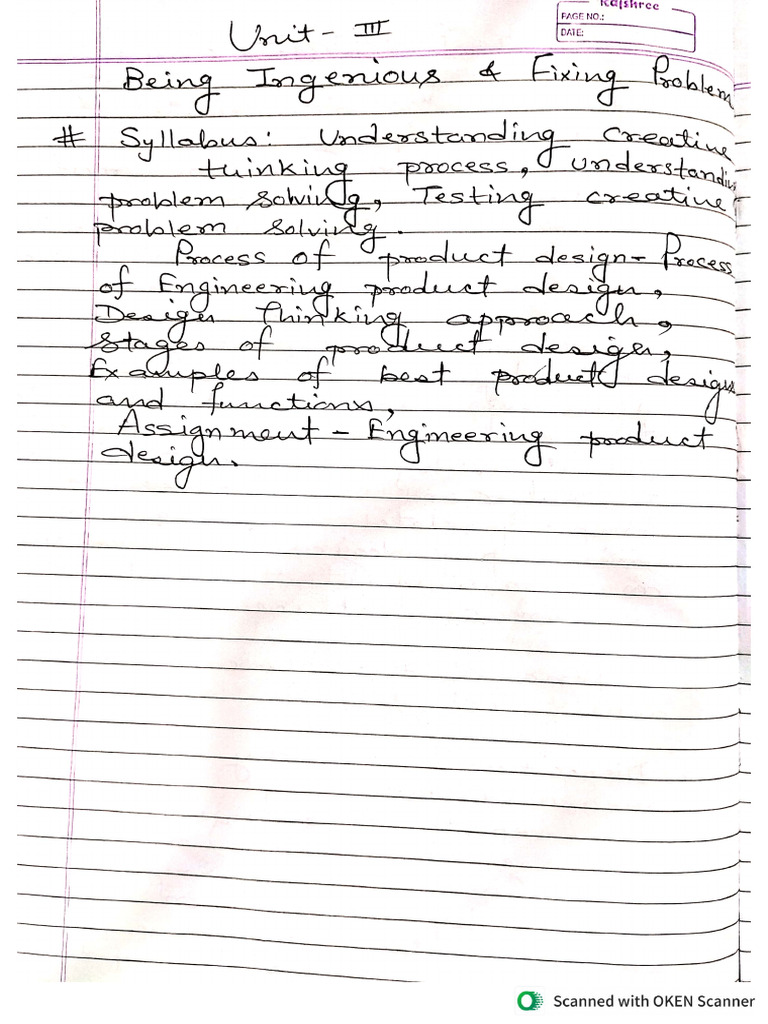 Rajshree
PAGE NO.:
DATE:
Unit - III
Being Ingenious & Fixing Problem
# Syllabus: Understanding creative
thinking process, understanding
problem solving, Testing creative
problem solving.
Process of product design - Process
of Engineering product design,
Design Thinking approach,
Stages of product design,
Examples of best product design
and functions,
Assignment - Engineering product
design.
Scanned with OKEN Scanner